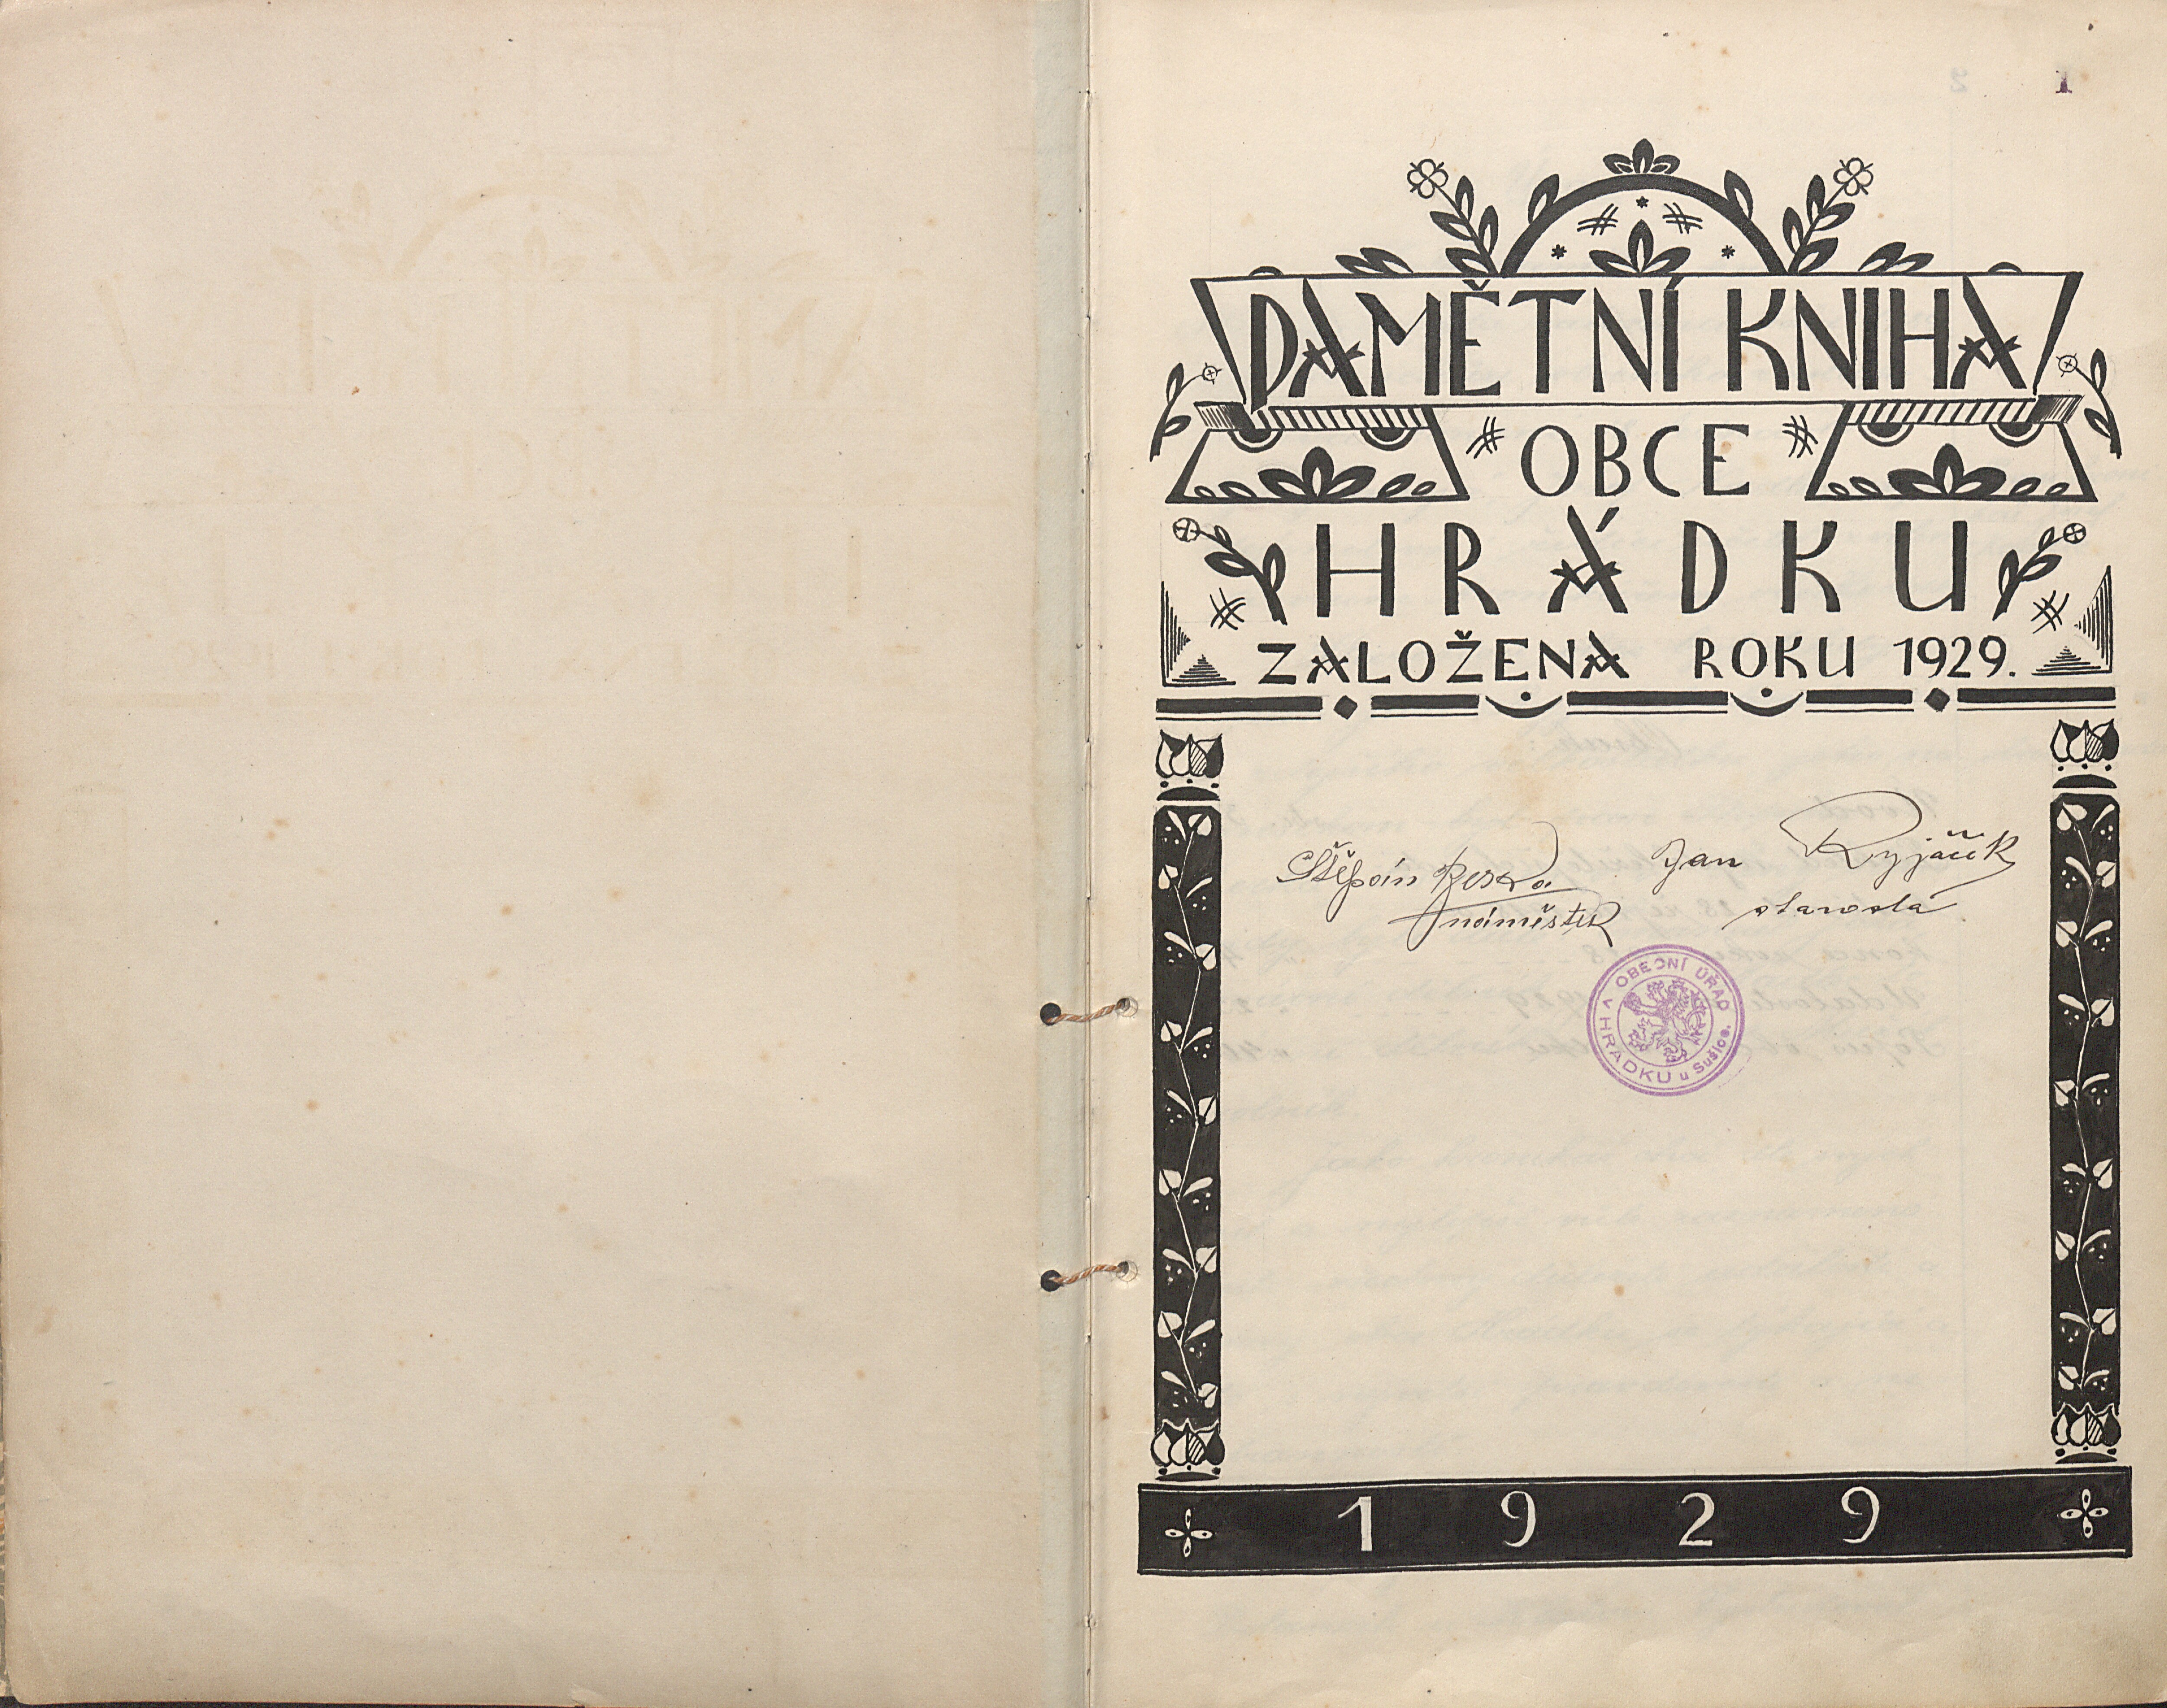 1
PAMĚTNÍ KNIHA
OBCE
HRÁDKU
ZALOŽENA ROKU 1929.
Štěpán
Jan Ryjáček
náměstek
starosta
OBECNÍ ÚŘAD
V HRÁDKU u Sušice.
1929